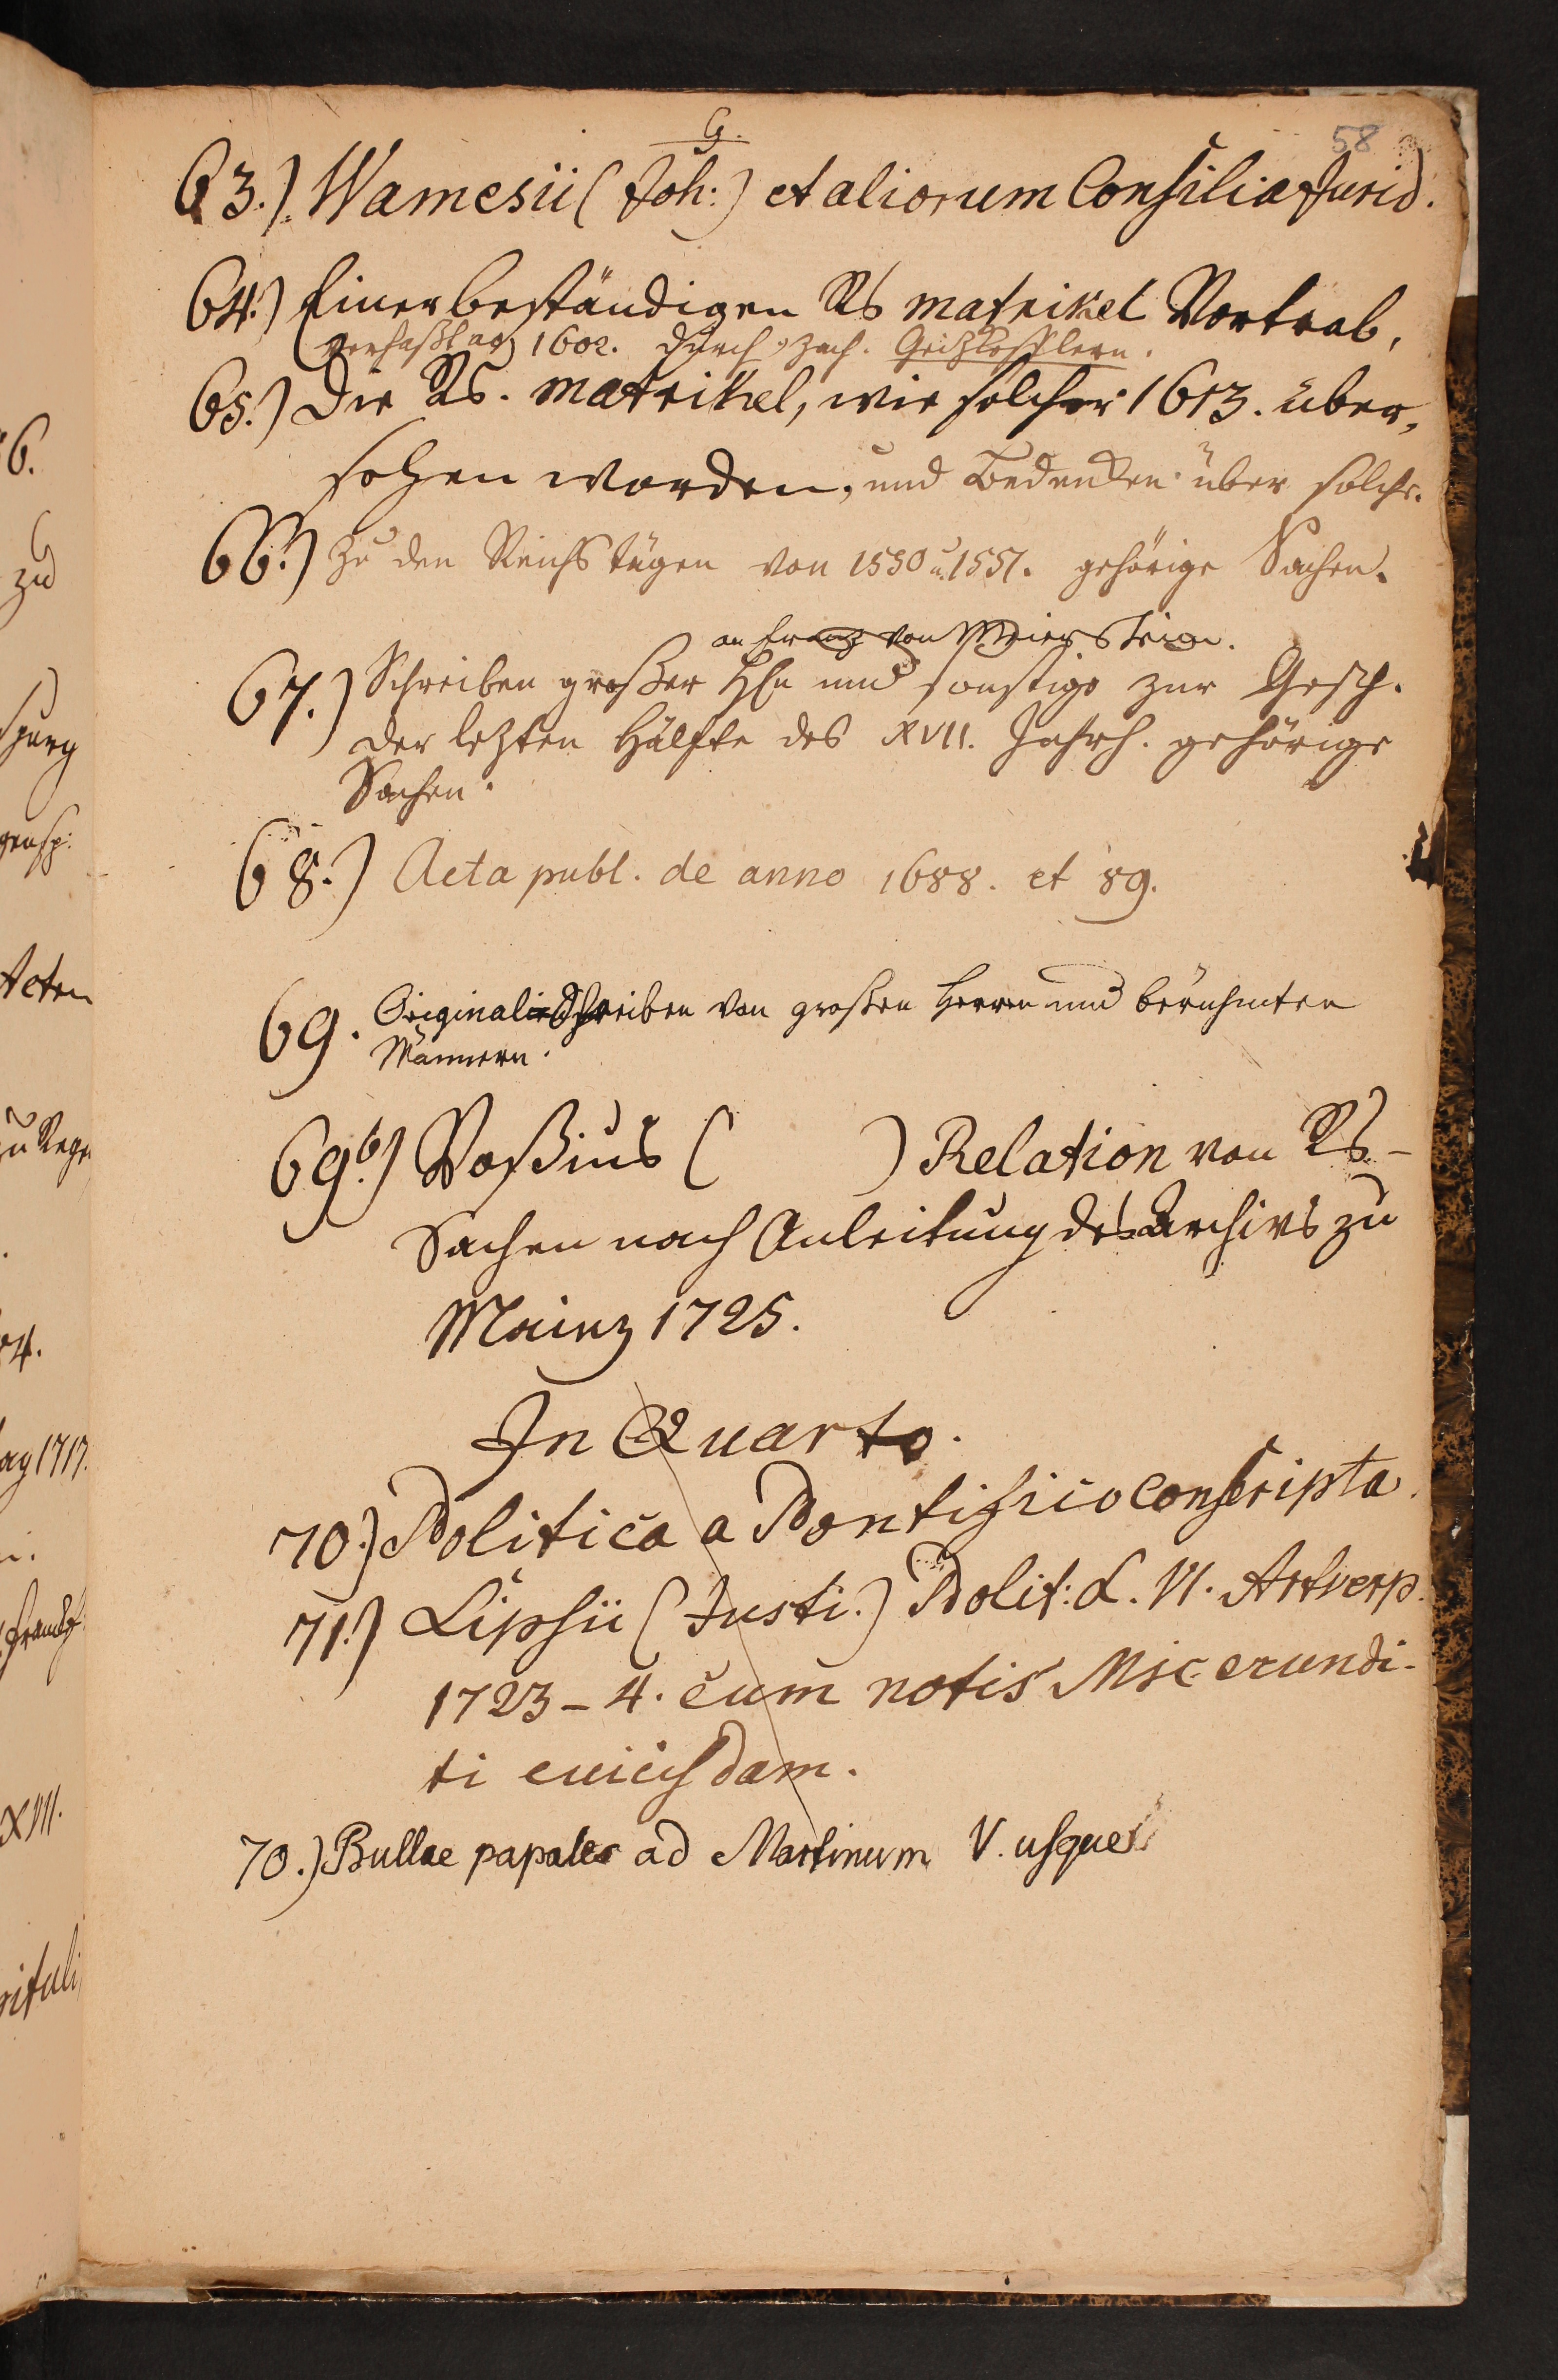 G.
58
63.) Wamesii (Joh:) et aliorum Consilia Jurid.
64.) Einer beständigen Rs matrikel Vortrab,
verfaßt ao 1602. durch Zach. Geitzkofflern.
65.) Die Rs. matrikel, wie solcher 1613. über,
sehen worden, und Bedenken über solche.
66.) Zu den Reichstägen von 1550 u. 1551. gehörige Sachen.
an Franz von Meierstein.
67.) Schreiben großer HEn und sonstige zur Gesch.
der lezten Hälfte des XVII. Jahrh. gehörige
Sachen.
68.) Acta publ. de anno 1688. et 89.
69. Originalschreiben von großen Herren und berühmten
Männern.
69.b) Voßius ( ) Relation von Rs-
Sachen nach Anleitung des Archivs zu
Mainz 1725.
In Quarto.
70.) Politica a Pontificio conscripta.
71.) Lipsii (Justi.) Polit: L. VI. Antverp.
1723-4. cum notis Msc erundi-
ti cuiusdam.
70.) Bullae papales ad Martinum V. usque